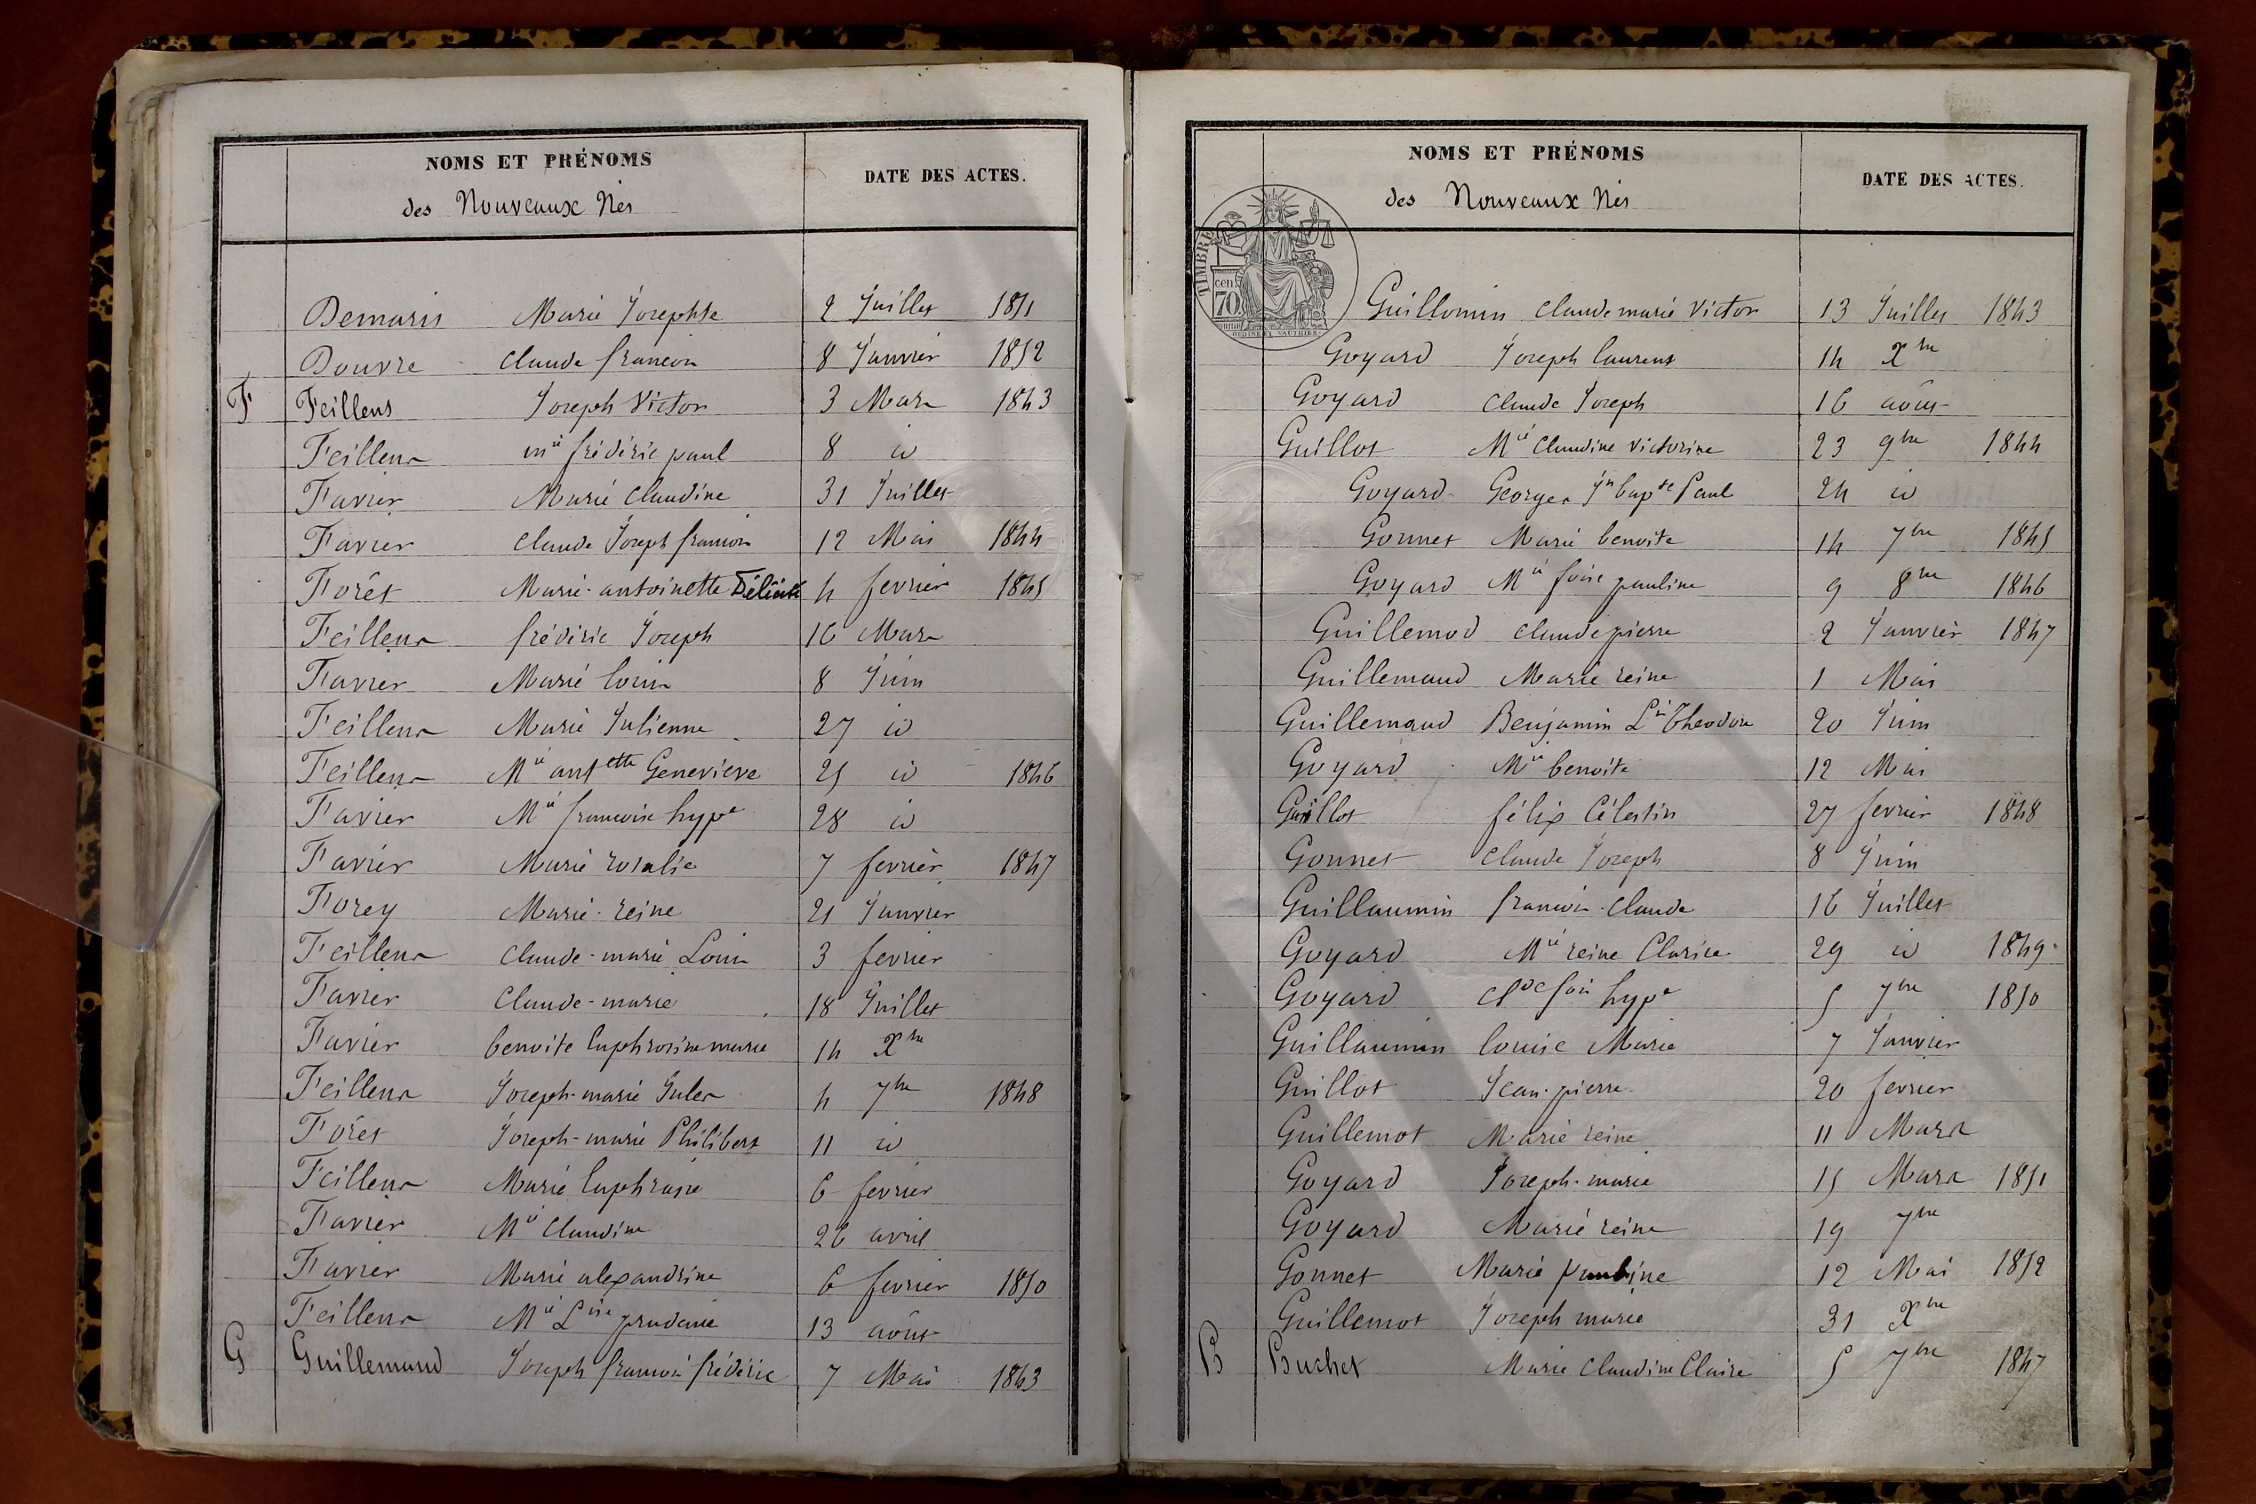 NOMS ET PRÉNOMS
des Nouveaux Nés
DATE DES ACTES.
Demaris Marie Josephte 2 Juillet 1851
Douvre Claude françois 8 Janvier 1852
F Feillens Joseph Victor 3 Mars 1843
Feillens mie frédéric paul 8 id
Favier Marie Claudine 31 Juillet
Favier Claude Joseph françois 12 Mai 1844
Forêt Marie-antoinette 4 fevrier 1845
Feillens frédéric Joseph 16 Mars
Favier Marie louis 8 Juin
Feillens Marie Julienne 27 id
Feillens Mie antette Genevieve 25 id 1846
Favier Mie francoise hypte 28 id
Favier Marie rosalie 7 fevrier 1847
Forey Marie-reine 21 Janvier
Feillens Claude-marie Louis 3 fevrier
Favier Claude-marie 18 Juillet
Favier benoite Euphrosine marie 14 Xbre
Feillens Joseph-marie Jules 4 7bre 1848
Forêt Joseph-marie Philibert 11 id
Feillens Marie Euphrasie 6 fevrier
Favier Mie Claudine 26 avril
Favier Marie alexandrine 6 fevrier 1850
Feillens Mie Lise prudence 13 août
G Guillemaud Joseph françois frédéric 7 Mai 1843
NOMS ET PRÉNOMS
des Nouveaux Nés
DATE DES ACTES.
TIMBRE
cen
70
Guillomin Claude marie Victor 13 Juillet 1843
Goyard Joseph laurent 14 Xbre
Goyard Claude Joseph 16 août
Guillot Mie Claudine Victorine 23 9bre 1844
Goyard Georges Jn bapte Paul 24 id
Gonnet Marie benoite 14 7bre 1845
Goyard Mie foise pauline 9 8bre 1846
Guillemod Claude pierre 2 Janvier 1847
Guillemaud Marie reine 1 Mai
Guillemaud Benjamin Lis Theodore 20 Juin
Goyard Mie benoite 12 Mai
Guillot félix Célestin 27 fevrier 1848
Gonnet Claude Joseph 8 Juin
Guillaumin francois-Claude 16 Juillet
Goyard Mie reine Clarice 29 id 1849
Goyard Cde fois hypte 5 7bre 1850
Guillaumin louise Marie 7 Janvier
Guillot Jean-pierre 20 fevrier
Guillemot Marie reine 11 Mars
Goyard Joseph-marie 15 Mars 1851
Goyard Marie reine 19 7bre
Gonnet Marie pauline 12 Mai 1852
Guillemot Joseph marie 31 Xbre
B Buchet Marie Claudine Claire 5 7bre 1847